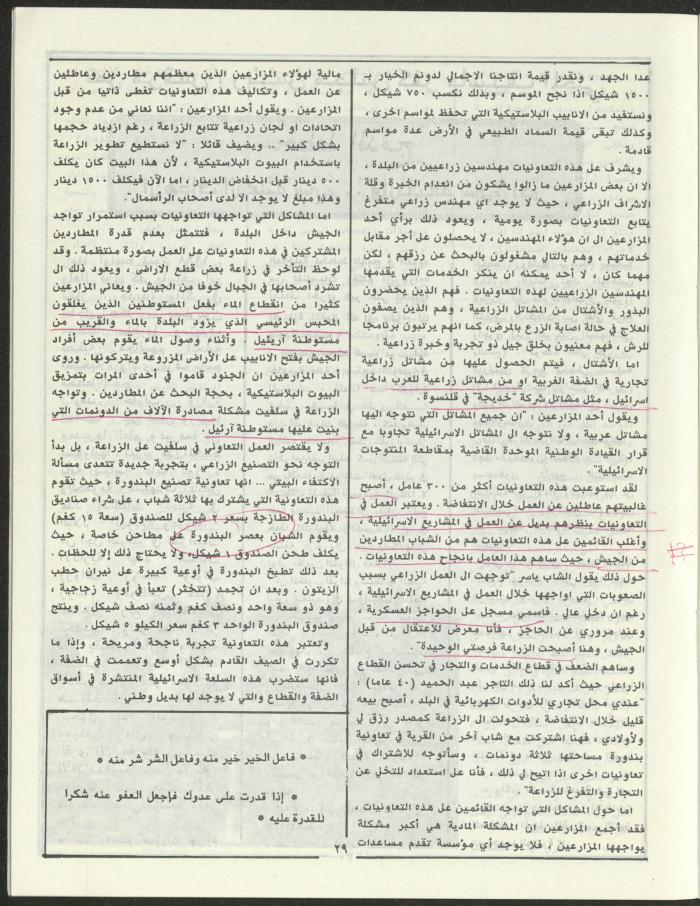 عدا الجهد ، ونقدر قيمة انتاجنا الاجمالي لدونم الخيار بـ
١٥٠٠ شيكل اذا نجح الموسم ، وبذلك نكسب ٧٥٠ شيكل ،
ونستفيد من الانابيب البلاستيكية التي تحفظ لمواسم اخرى ،
وكذلك تبقى قيمة السماد الطبيعي في الأرض عدة مواسم
قادمة .
ويشرف على هذه التعاونيات مهندسين زراعيين من البلدة ،
الا ان بعض المزارعين ما زالوا يشكون من انعدام الخبرة وقلة
الاشراف الزراعي ، حيث لا يوجد اي مهندس زراعي متفرغ
يتابع التعاونيات بصورة يومية ، ويعود ذلك برأي أحد
المزارعين الى ان هؤلاء المهندسين ، لا يحصلون على أجر مقابل
خدماتهم ، وهم بالتالي مشغولون بالبحث عن رزقهم ، لكن
مهما كان ، لا أحد يمكنه ان ينكر الخدمات التي يقدمها
المهندسين الزراعيين لهذه التعاونيات . فهم الذين يحضرون
البذور والأشتال من المشاتل الزراعية ، وهم الذين يصفون
العلاج في حالة اصابة الزرع بالمرض، كما انهم يرتبون برنامجا
للرش ، فهم معنيون بخلق جيل ذو تجربة وخبرة زراعية .
اما الأشتال ، فيتم الحصول عليها من مشاتل زراعية
تجارية في الضفة الغربية او من مشاتل زراعية للعرب داخل
اسرائيل ، مثل مشاتل شركة "خديجة" في قلنسوة .
ويقول أحد المزارعين : "ان جميع المشاتل التي نتوجه اليها
مشاتل عربية ، ولا نتوجه الى المشاتل الاسرائيلية تجاوبا مع
قرار القيادة الوطنية الموحدة القاضية بمقاطعة المنتوجات
الاسرائيلية" .
لقد استوعبت هذه التعاونيات أكثر من ٣٠٠ عامل ، أصبح
غالبيتهم عاطلين عن العمل خلال الانتفاضة . ويعتبر العمل في
التعاونيات بنظرهم بديل عن العمل في المشاريع الاسرائيلية ،
وأغلب القائمين على هذه التعاونيات هم من الشباب المطاردين
من الجيش ، حيث ساهم هذا العامل بانجاح هذه التعاونيات .
حول ذلك يقول الشاب ياسر "توجهت الى العمل الزراعي بسبب
الصعوبات التي اواجهها خلال العمل في المشاريع الاسرائيلية ،
رغم ان دخلي عالي . فاسمي مسجل على الحواجز العسكرية ،
وعند مروري عن الحاجز ، فأنا معرض للاعتقال من قبل
الجيش ، وهنا أصبحت الزراعة فرصتي الوحيدة" .
وساهم الضعف في قطاع الخدمات والتجار في تحسن القطاع
الزراعي حيث أكد لنا ذلك التاجر عبد الحميد (٤٠ عاما) :
"عندي محل تجاري للأدوات الكهربائية في البلد ، أصبح بيعه
قليل خلال الانتفاضة ، فتحولت الى الزراعة كمصدر رزق لي
ولأولادي ، فهنا اشتركت مع شاب آخر من القرية في تعاونية
بندورة مساحتها ثلاثة دونمات ، وسأتوجه للاشتراك في
تعاونيات اخرى اذا اتيح لي ذلك ، فأنا على استعداد للتخلي عن
التجارة والتفرغ للزراعة" .
اما حول المشاكل التي تواجه القائمين على هذه التعاونيات ،
فقد أجمع المزارعين ان المشكلة المادية هي أكبر مشكلة
يواجهها المزارعين ، فلا يوجد أي مؤسسة تقدم مساعدات
مالية لهؤلاء المزارعين الذين معظمهم مطاردين وعاطلين
عن العمل ، وتكاليف هذه التعاونيات تغطى ذاتيا من قبل
المزارعين . ويقول أحد المزارعين : "اننا نعاني من عدم وجود
اتحادات او لجان زراعية تتابع الزراعة ، رغم ازدياد حجمها
بشكل كبير" .. ويضيف قائلا : "لا نستطيع تطوير الزراعة
باستخدام البيوت البلاستيكية ، لأن هذا البيت كان يكلف
٥٠٠ دينار قبل انخفاض الدينار ، اما الآن فيكلف ١٥٠٠ دينار
وهذا مبلغ لا يوجد الا لدى أصحاب الرأسمال" .
اما المشاكل التي تواجهها التعاونيات بسبب استمرار تواجد
الجيش داخل البلدة ، فتتمثل بعدم قدرة المطاردين
المشتركين في هذه التعاونيات على العمل بصورة منتظمة . وقد
لوحظ التأخر في زراعة بعض قطع الاراضى ، ويعود ذلك الى
تشرد أصحابها في الجبال خوفا من الجيش . ويعاني المزارعين
كثيرا من انقطاع الماء بفعل المستوطنين الذين يغلقون
المحبس الرئيسي الذي يزود البلدة بالماء والقريب من
مستوطنة آريئيل . وأثناء وصول الماء يقوم بعض أفراد
الجيش بفتح الانابيب على الأراض المزروعة ويتركونها . وروى
أحد المزارعين ان الجنود قاموا في أحدى المرات بتمزيق
البيوت البلاستيكية ، بحجة البحث عن المطاردين . وتواجه
الزراعة في سلفيت مشكلة مصادرة الآلاف من الدونمات التي
بنيت عليها مستوطنة آرئيل .
ولا يقتصر العمل التعاوني في سلفيت على الزراعة ، بل بدأ
التوجه نحو التصنيع الزراعي ، بتجربة جديدة تتعدى مسألة
الاكتفاء البيتي ... انها تعاونية تصنيع البندورة ، حيث تقوم
هذه التعاونية التي يشترك بها ثلاثة شباب ، على شراء صناديق
البندورة الطازجة بسعر ٢ شيكل للصندوق (سعة ١٥ كغم)
ويقوم الشبان بعصر البندورة على مطاحن خاصة ، حيث
يكلف طحن الصندوق ١ شيكل، ولا يحتاج ذلك إلا للحظات .
بعد ذلك تطبخ البندورة في أوعية كبيرة على نيران حطب
الزيتون . وبعد ان تجمد (تتخثر) تعبأ في أوعية زجاجية ،
وهو ذو سعة واحد ونصف كغم وثمنه نصف شيكل . وينتج
صندوق البندورة الواحد ٣ كغم سعر الكيلو ٥ شيكل .
وتعتبر هذه التعاونية تجربة ناجحة ومريحة ، وإذا ما
تكررت في الصيف القادم بشكل أوسع وتعممت في الضفة ،
فانها ستضرب هذه السلعة الاسرائيلية المنتشرة في أسواق
الضفة والقطاع والتي لا يوجد لها بديل وطني .
* فاعل الخير خير منه وفاعل الشر شر منه *
* إذا قدرت على عدوك فإجعل العفو عنه شكرا
للقدرة عليه *
٢٩